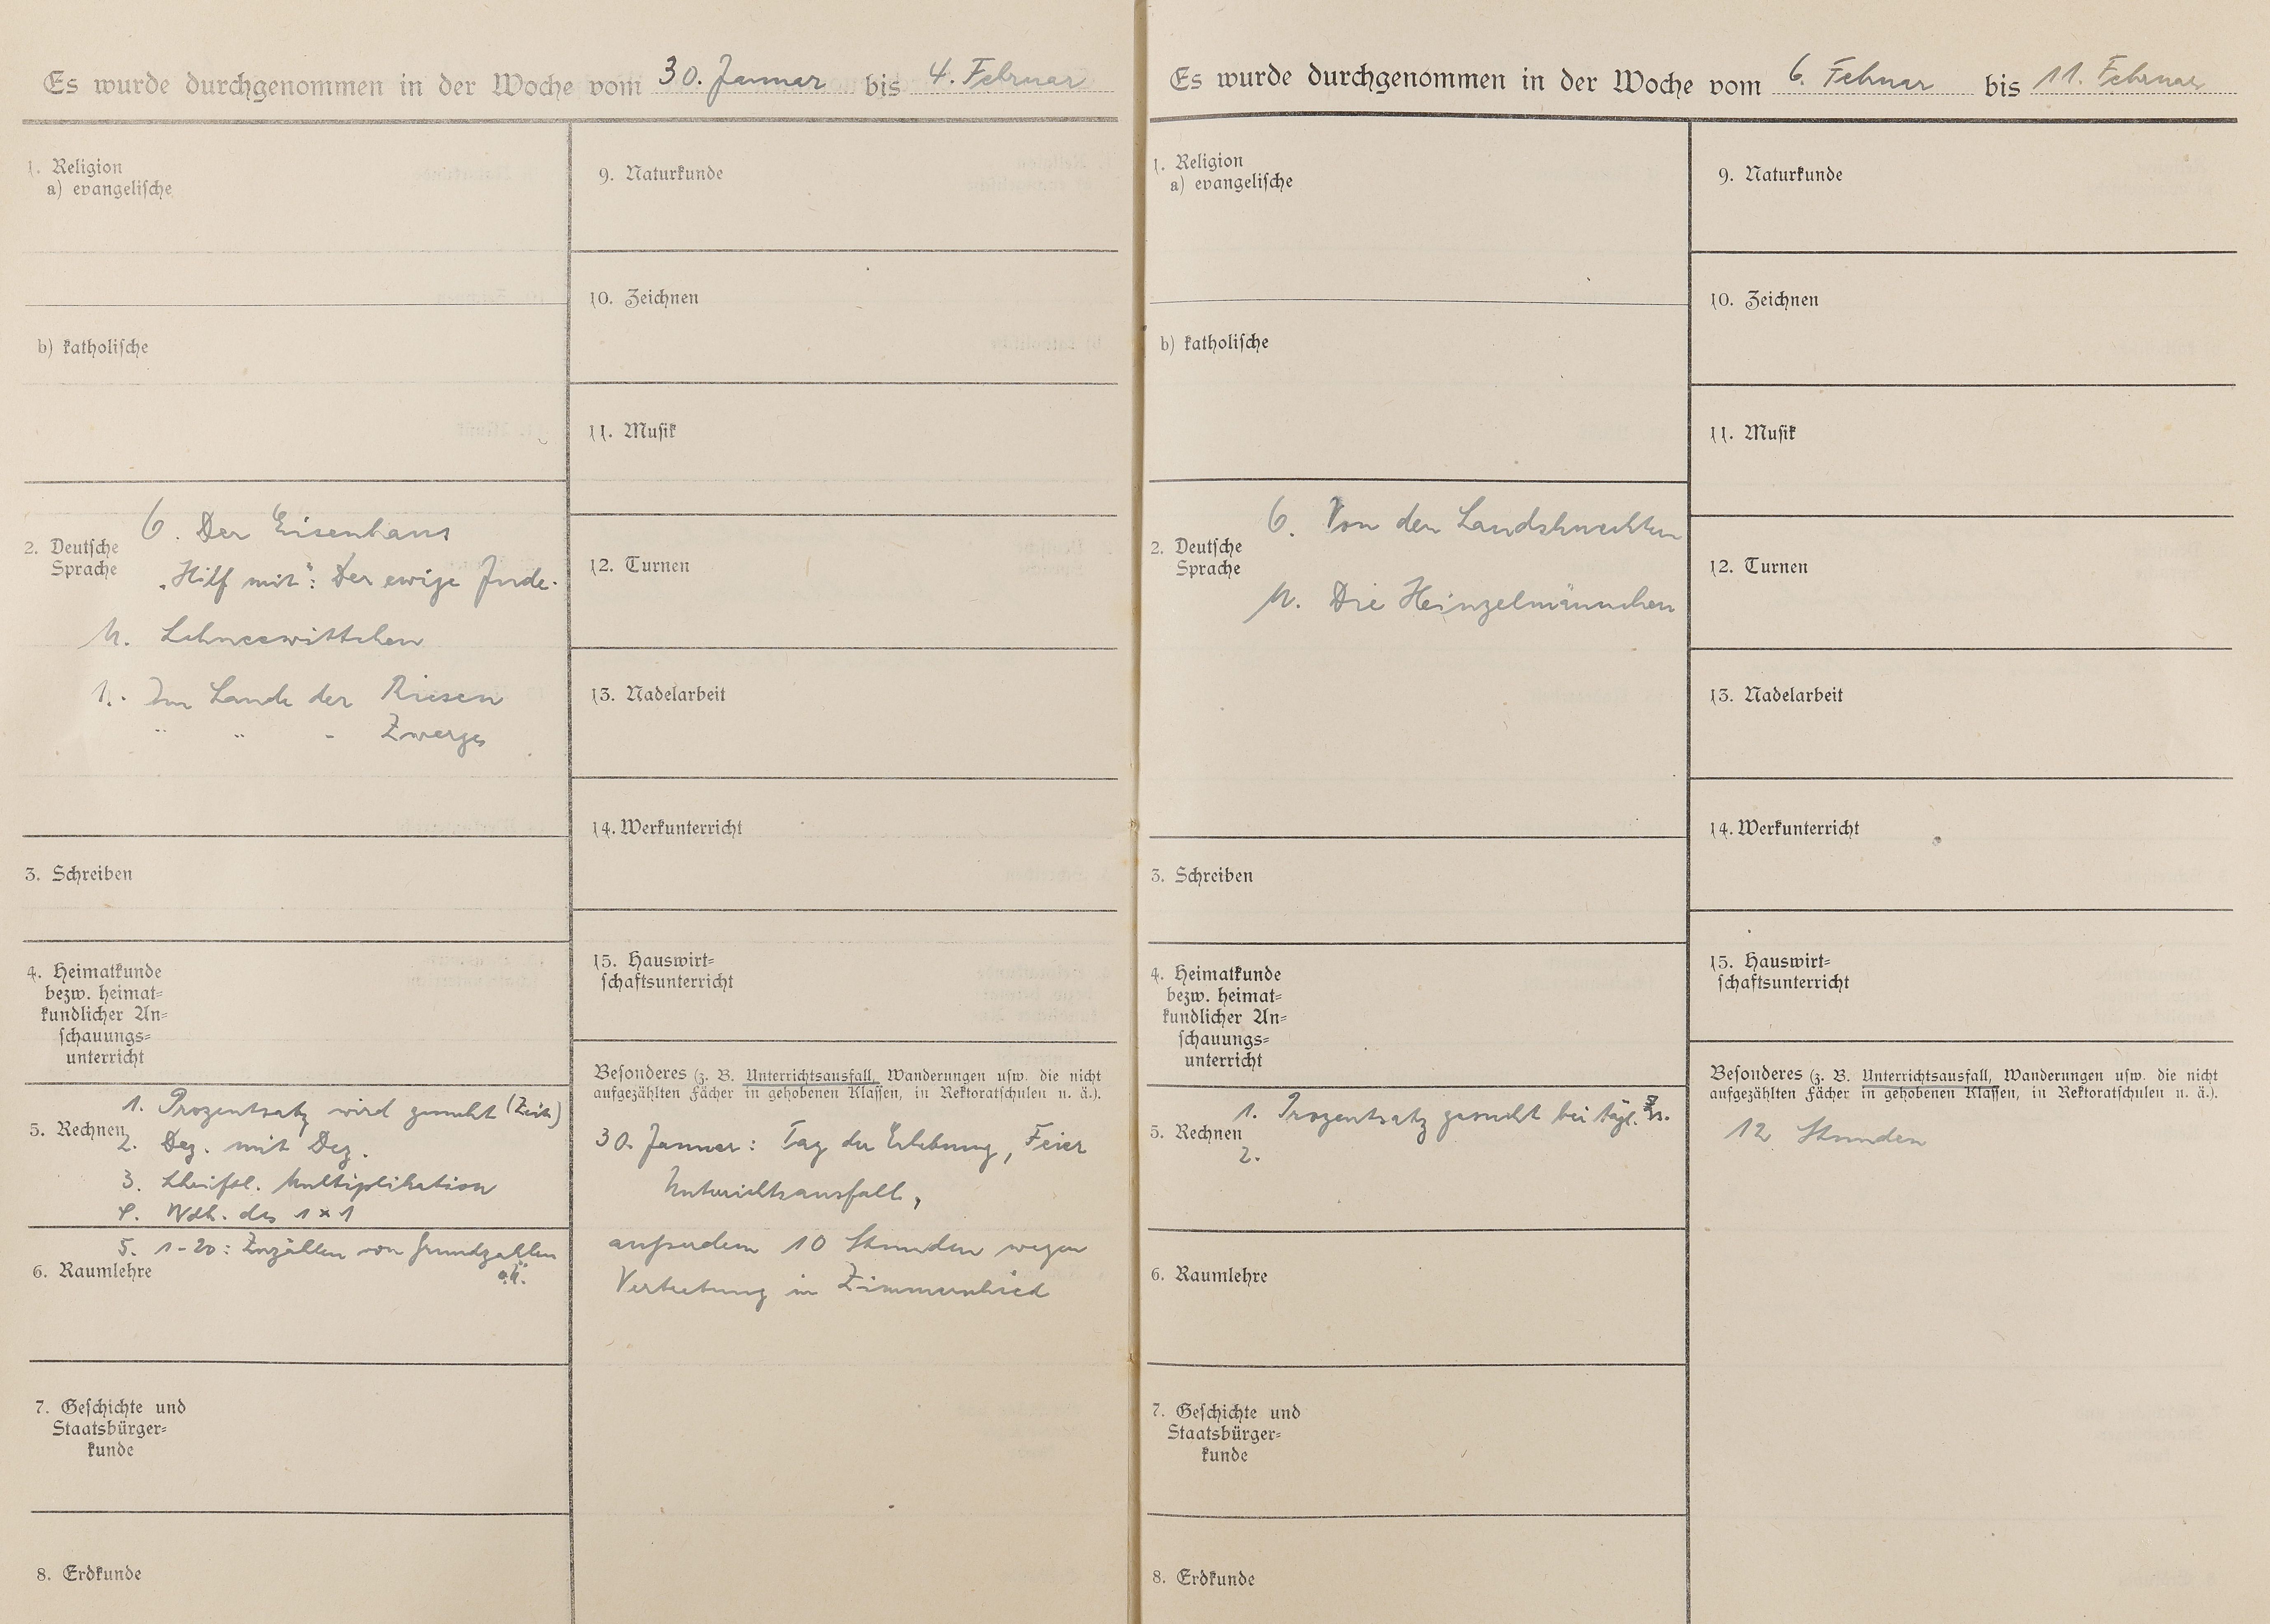 Es wurde durchgenommen in der Woche vom 30. Januar bis 4. Februar
1. Religion
a) evangeliſche
b) katholiſche
2. Deutſche
Sprache
6. Der Eisenhans
"Hilf mit": Der ewige Jude.
M. Schneewittchen
1. Im Lande der Riesen
" " " Zwerge
3. Schreiben
4. Heimatkunde
bezw. heimat=
kundlicher An=
ſchauungs=
unterricht
5. Rechnen
1. Prozentsatz wird gesucht (Zeit)
2. Dez. mit Dez.
3. Schriftl. Multiplikation
4. Wdh. des 1 x 1
5. 1-20: Zuzählen von Grundzahlen
o.Ü.
6. Raumlehre
7. Geſchichte und
Staatsbürger=
kunde
8. Erdkunde
9. Naturkunde
10. Zeichnen
11. Muſik
12. Turnen
13. Nadelarbeit
14. Werkunterricht
15. Hauswirt=
ſchaftsunterricht
Beſonderes (z. B. Unterrichtsausfall, Wanderungen uſw. die nicht
aufgezählten Fächer in gehobenen Klaſſen, in Rektoratſchulen u. ä.).
30. Januar: Tag der Erhebung, Feier
Unterrichtsausfall,
außerdem 10 Stunden wegen
Vertretung in
Es wurde durchgenommen in der Woche vom 6. Februar bis 11. Februar
1. Religion
a) evangeliſche
b) katholiſche
2. Deutſche
Sprache
6. Von den Landsknechten
M. Die Heinzelmännchen
3. Schreiben
4. Heimatkunde
bezw. heimat=
kundlicher An=
ſchauungs=
unterricht
5. Rechnen
1. Prozentsatz gesucht bei tägl.
2.
6. Raumlehre
7. Geſchichte und
Staatsbürger=
kunde
8. Erdkunde
9. Naturkunde
10. Zeichnen
11. Muſik
12. Turnen
13. Nadelarbeit
14. Werkunterricht
15. Hauswirt=
ſchaftsunterricht
Beſonderes (z. B. Unterrichtsausfall, Wanderungen uſw. die nicht
aufgezählten Fächer in gehobenen Klaſſen, in Rektoratſchulen u. ä.).
12 Stunden